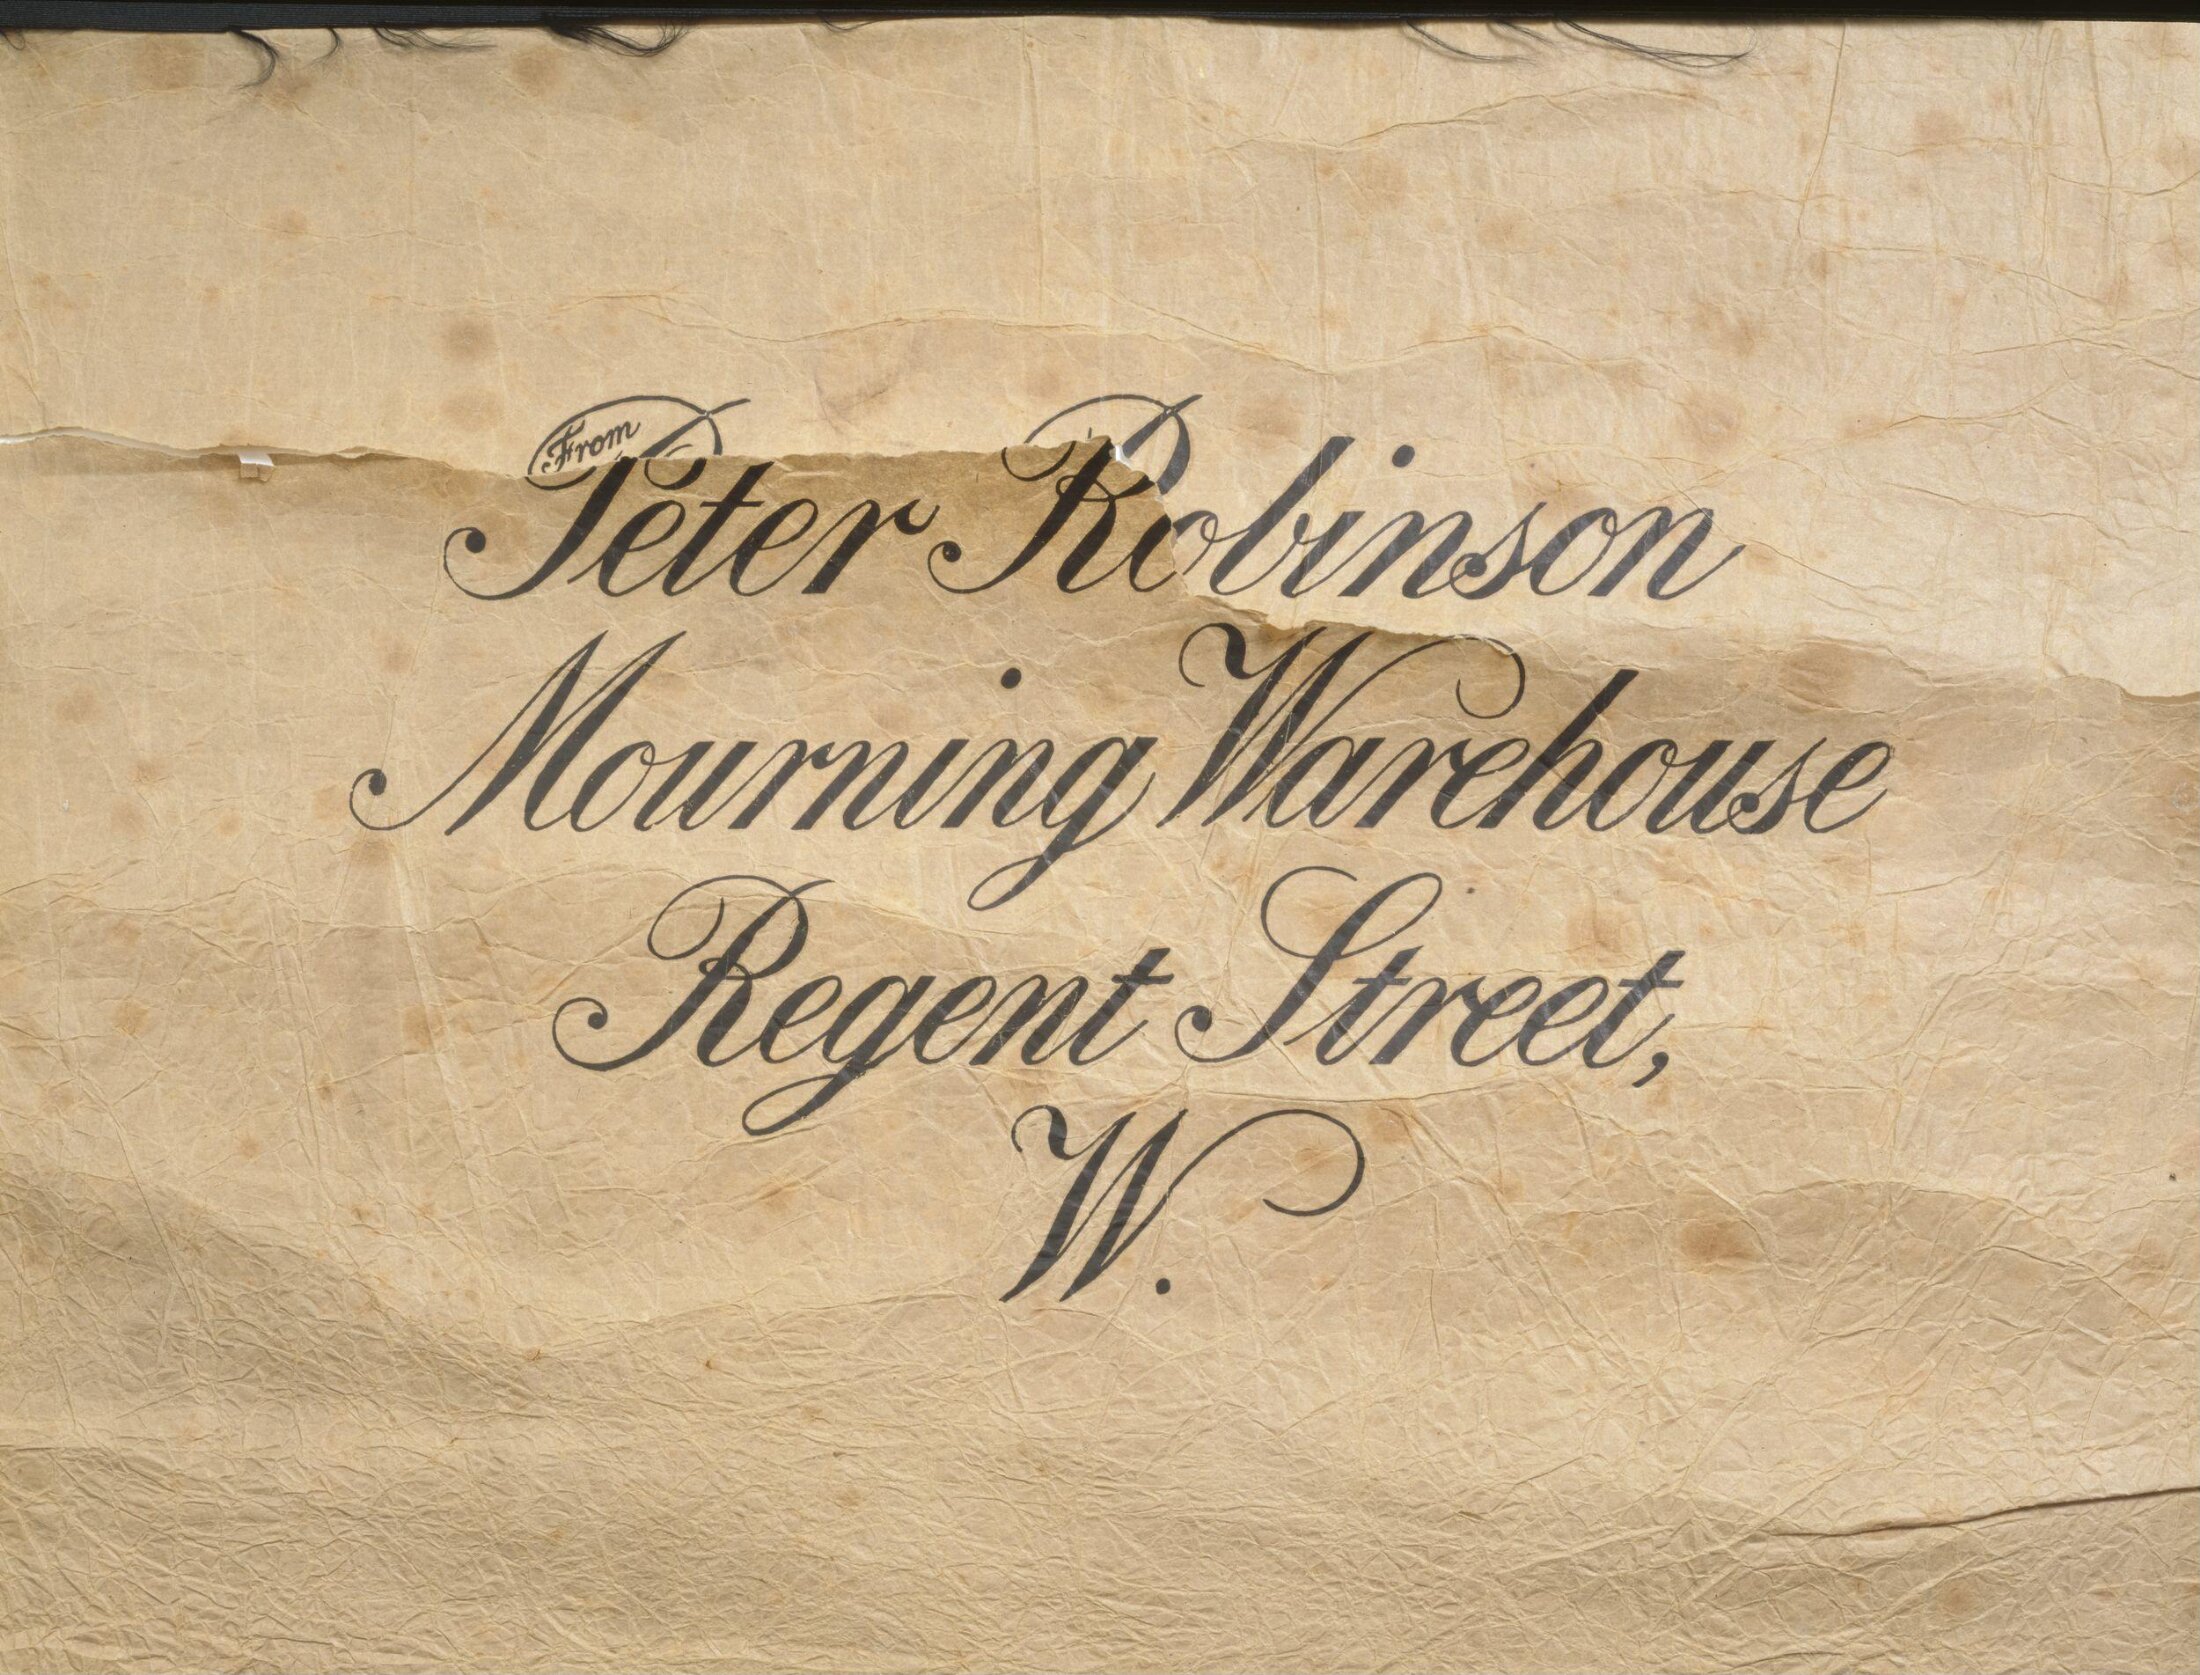 From
Peter Robinson
Mourning Warehouse
Regent Street,
W.